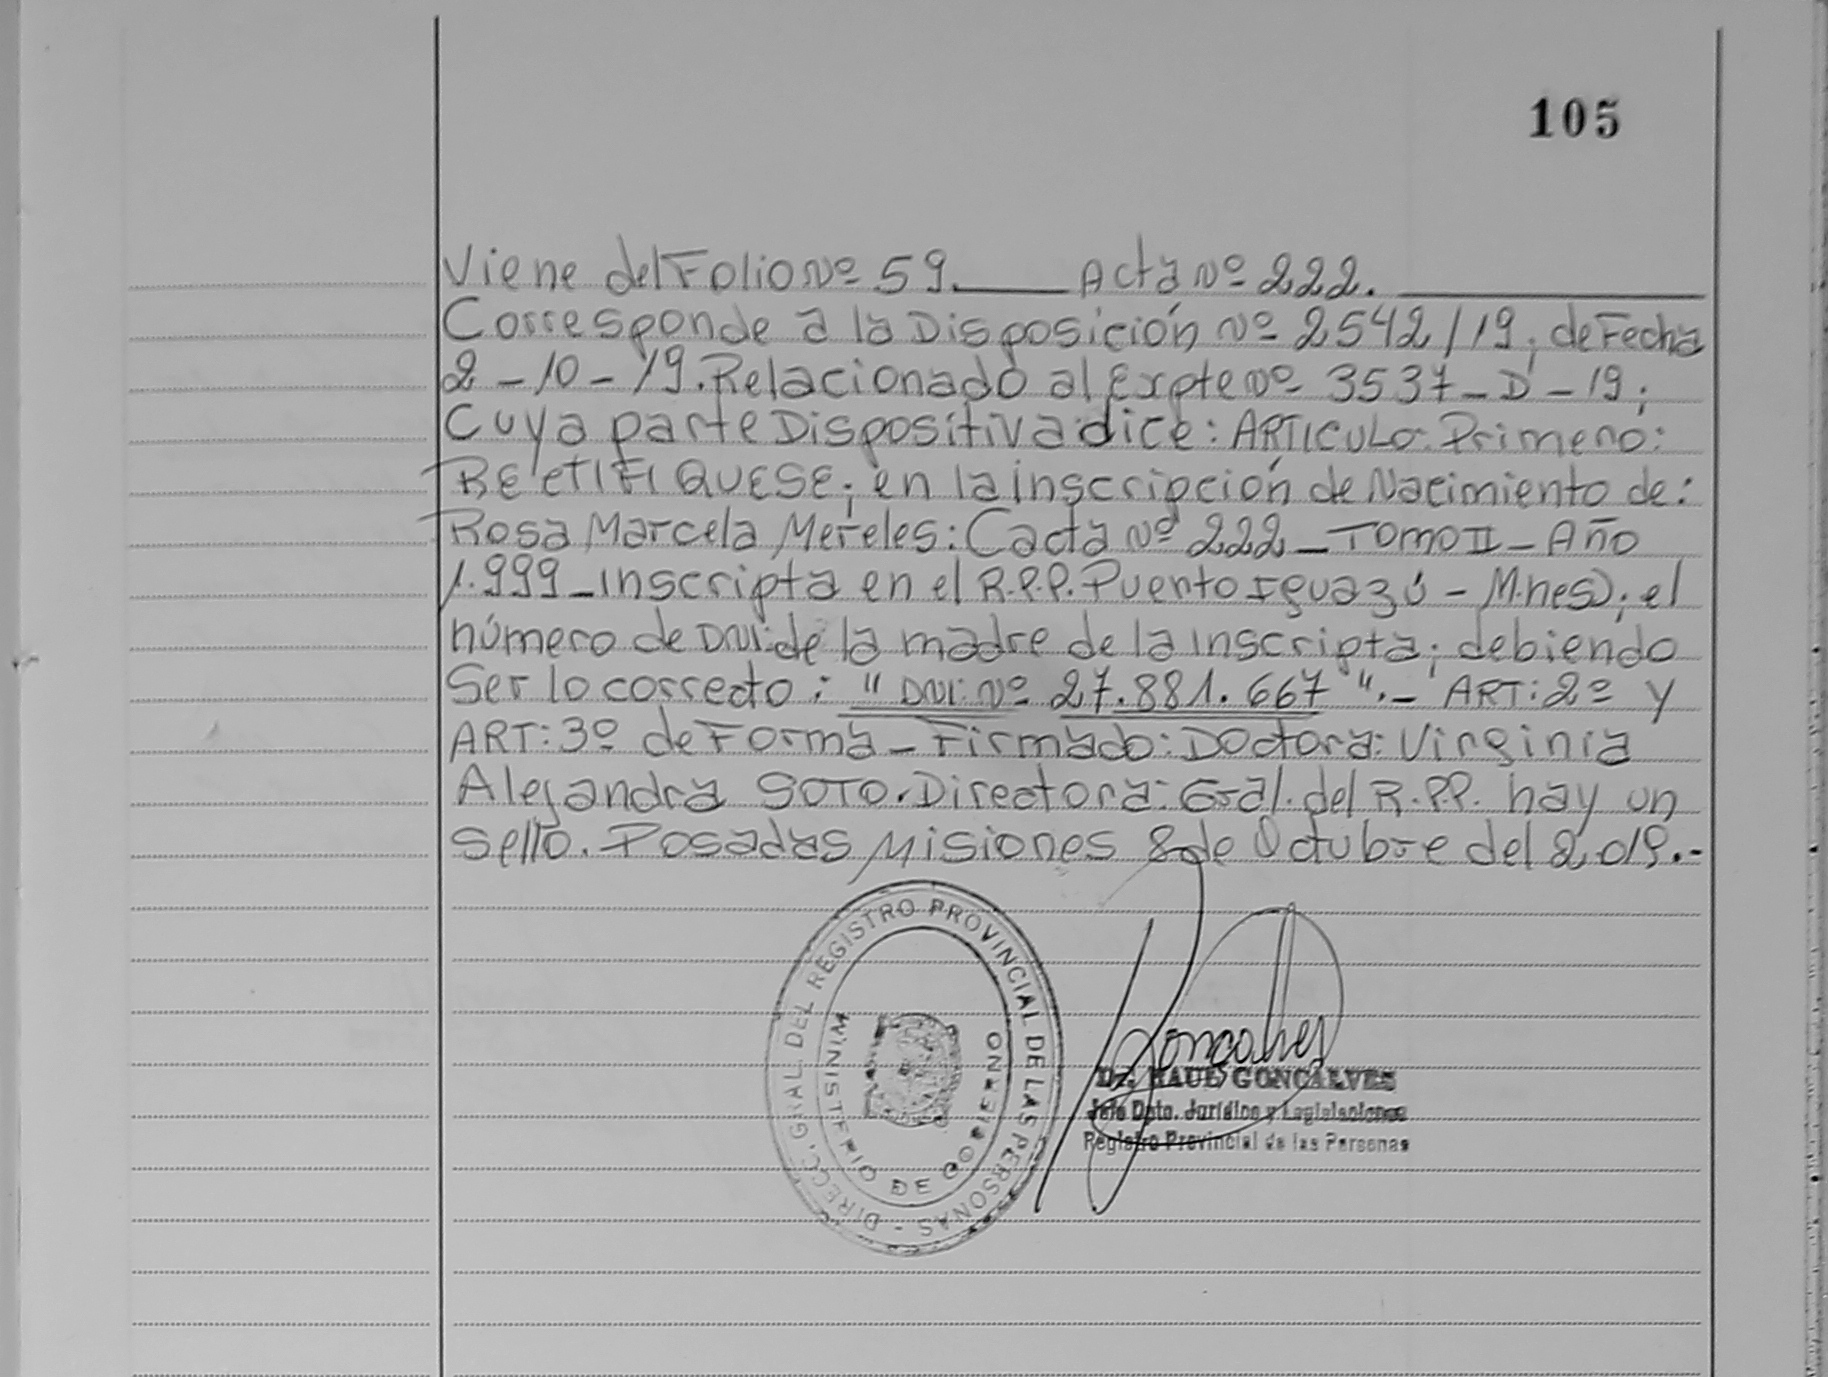 105
Viene del Folio Nº 59.____ Acta Nº 222.____
Corresponde a la Disposición Nº 2542/19, de Fecha
2-10-19. Relacionado al Expte Nº 3537-D-19;
Cuya parte Dispositiva dice: ARTICULO: Primero:
RECTIFIQUESE; en la inscripción de Nacimiento de:
Rosa Marcela Mereles: (acta Nº 222-TOMO II-Año
1.999-inscripta en el R.P.P. Puerto Iguazú - M.nes); el
número de DNI: de la madre de la inscripta; debiendo
Ser lo correcto: "DNI: Nº 27.881.667".- ART: 2º y
ART: 3º de Forma - Firmado: Doctora: Virginia
Alejandra SOTO. Directora: Gral. del R.P.P. hay un
sello. Posadas Misiones 8 de Octubre del 2019.-
DIRECC. GRAL. DEL REGISTRO PROVINCIAL DE LAS PERSONAS -
MINISTERIO DE GOBIERNO
Goncalves
Dr. RAUL GONCALVES
Jefe Dpto. Jurídico y Legislaciones
Registro Provincial de las Personas